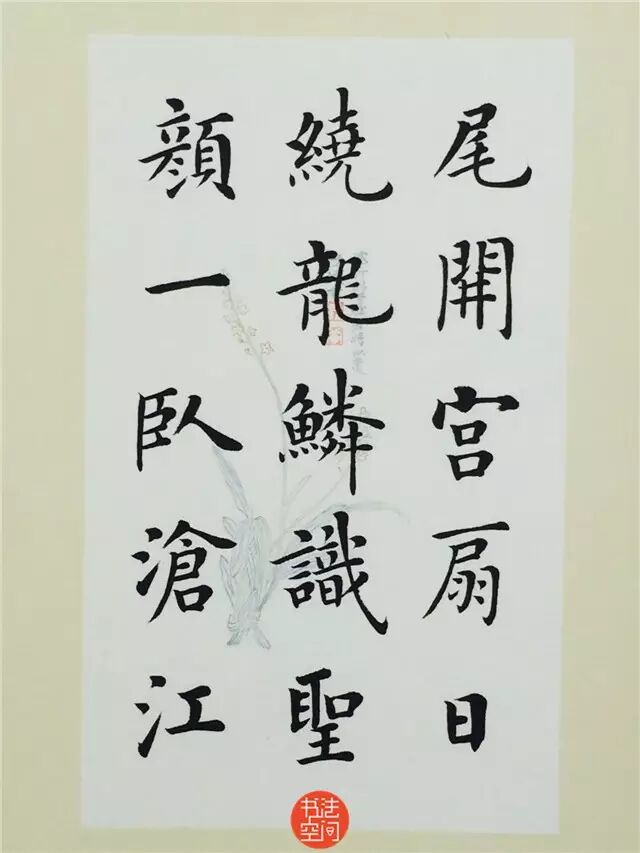 尾開宮扇日
繞龍鱗識聖
顏一臥滄江
书法空间